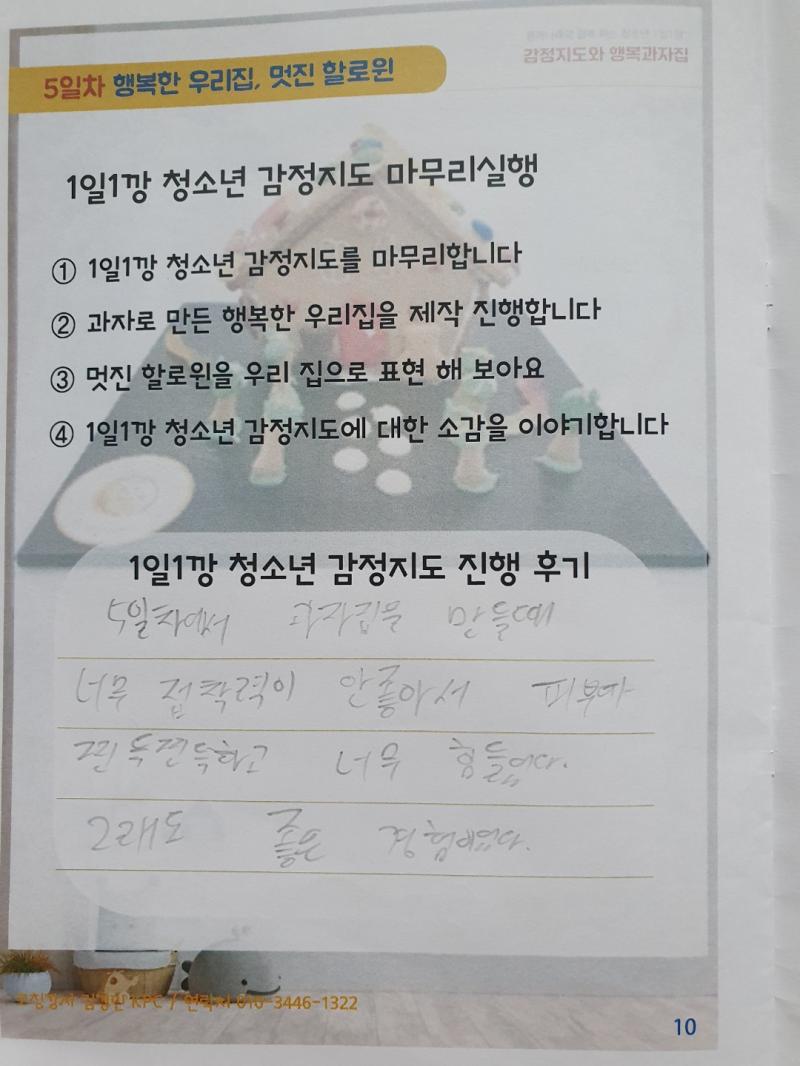 감정지도와 행복과자집
5일차 행복한 우리집, 멋진 할로윈
1일1깡 청소년 감정지도 마무리실행
① 1일1깡 청소년 감정지도를 마무리합니다
② 과자로 만든 행복한 우리집을 제작 진행합니다
③ 멋진 할로윈을 우리 집으로 표현 해 보아요
④ 1일1깡 청소년 감정지도에 대한 소감을 이야기합니다
1일1깡 청소년 감정지도 진행 후기
5일차에서 과자집을 만들때
너무 접착력이 안좋아서 피부가
찐득찐득하고 너무 힘들었다.
그래도 좋은 경험이었다.
KPC / 연락처 010-3446-1322
10